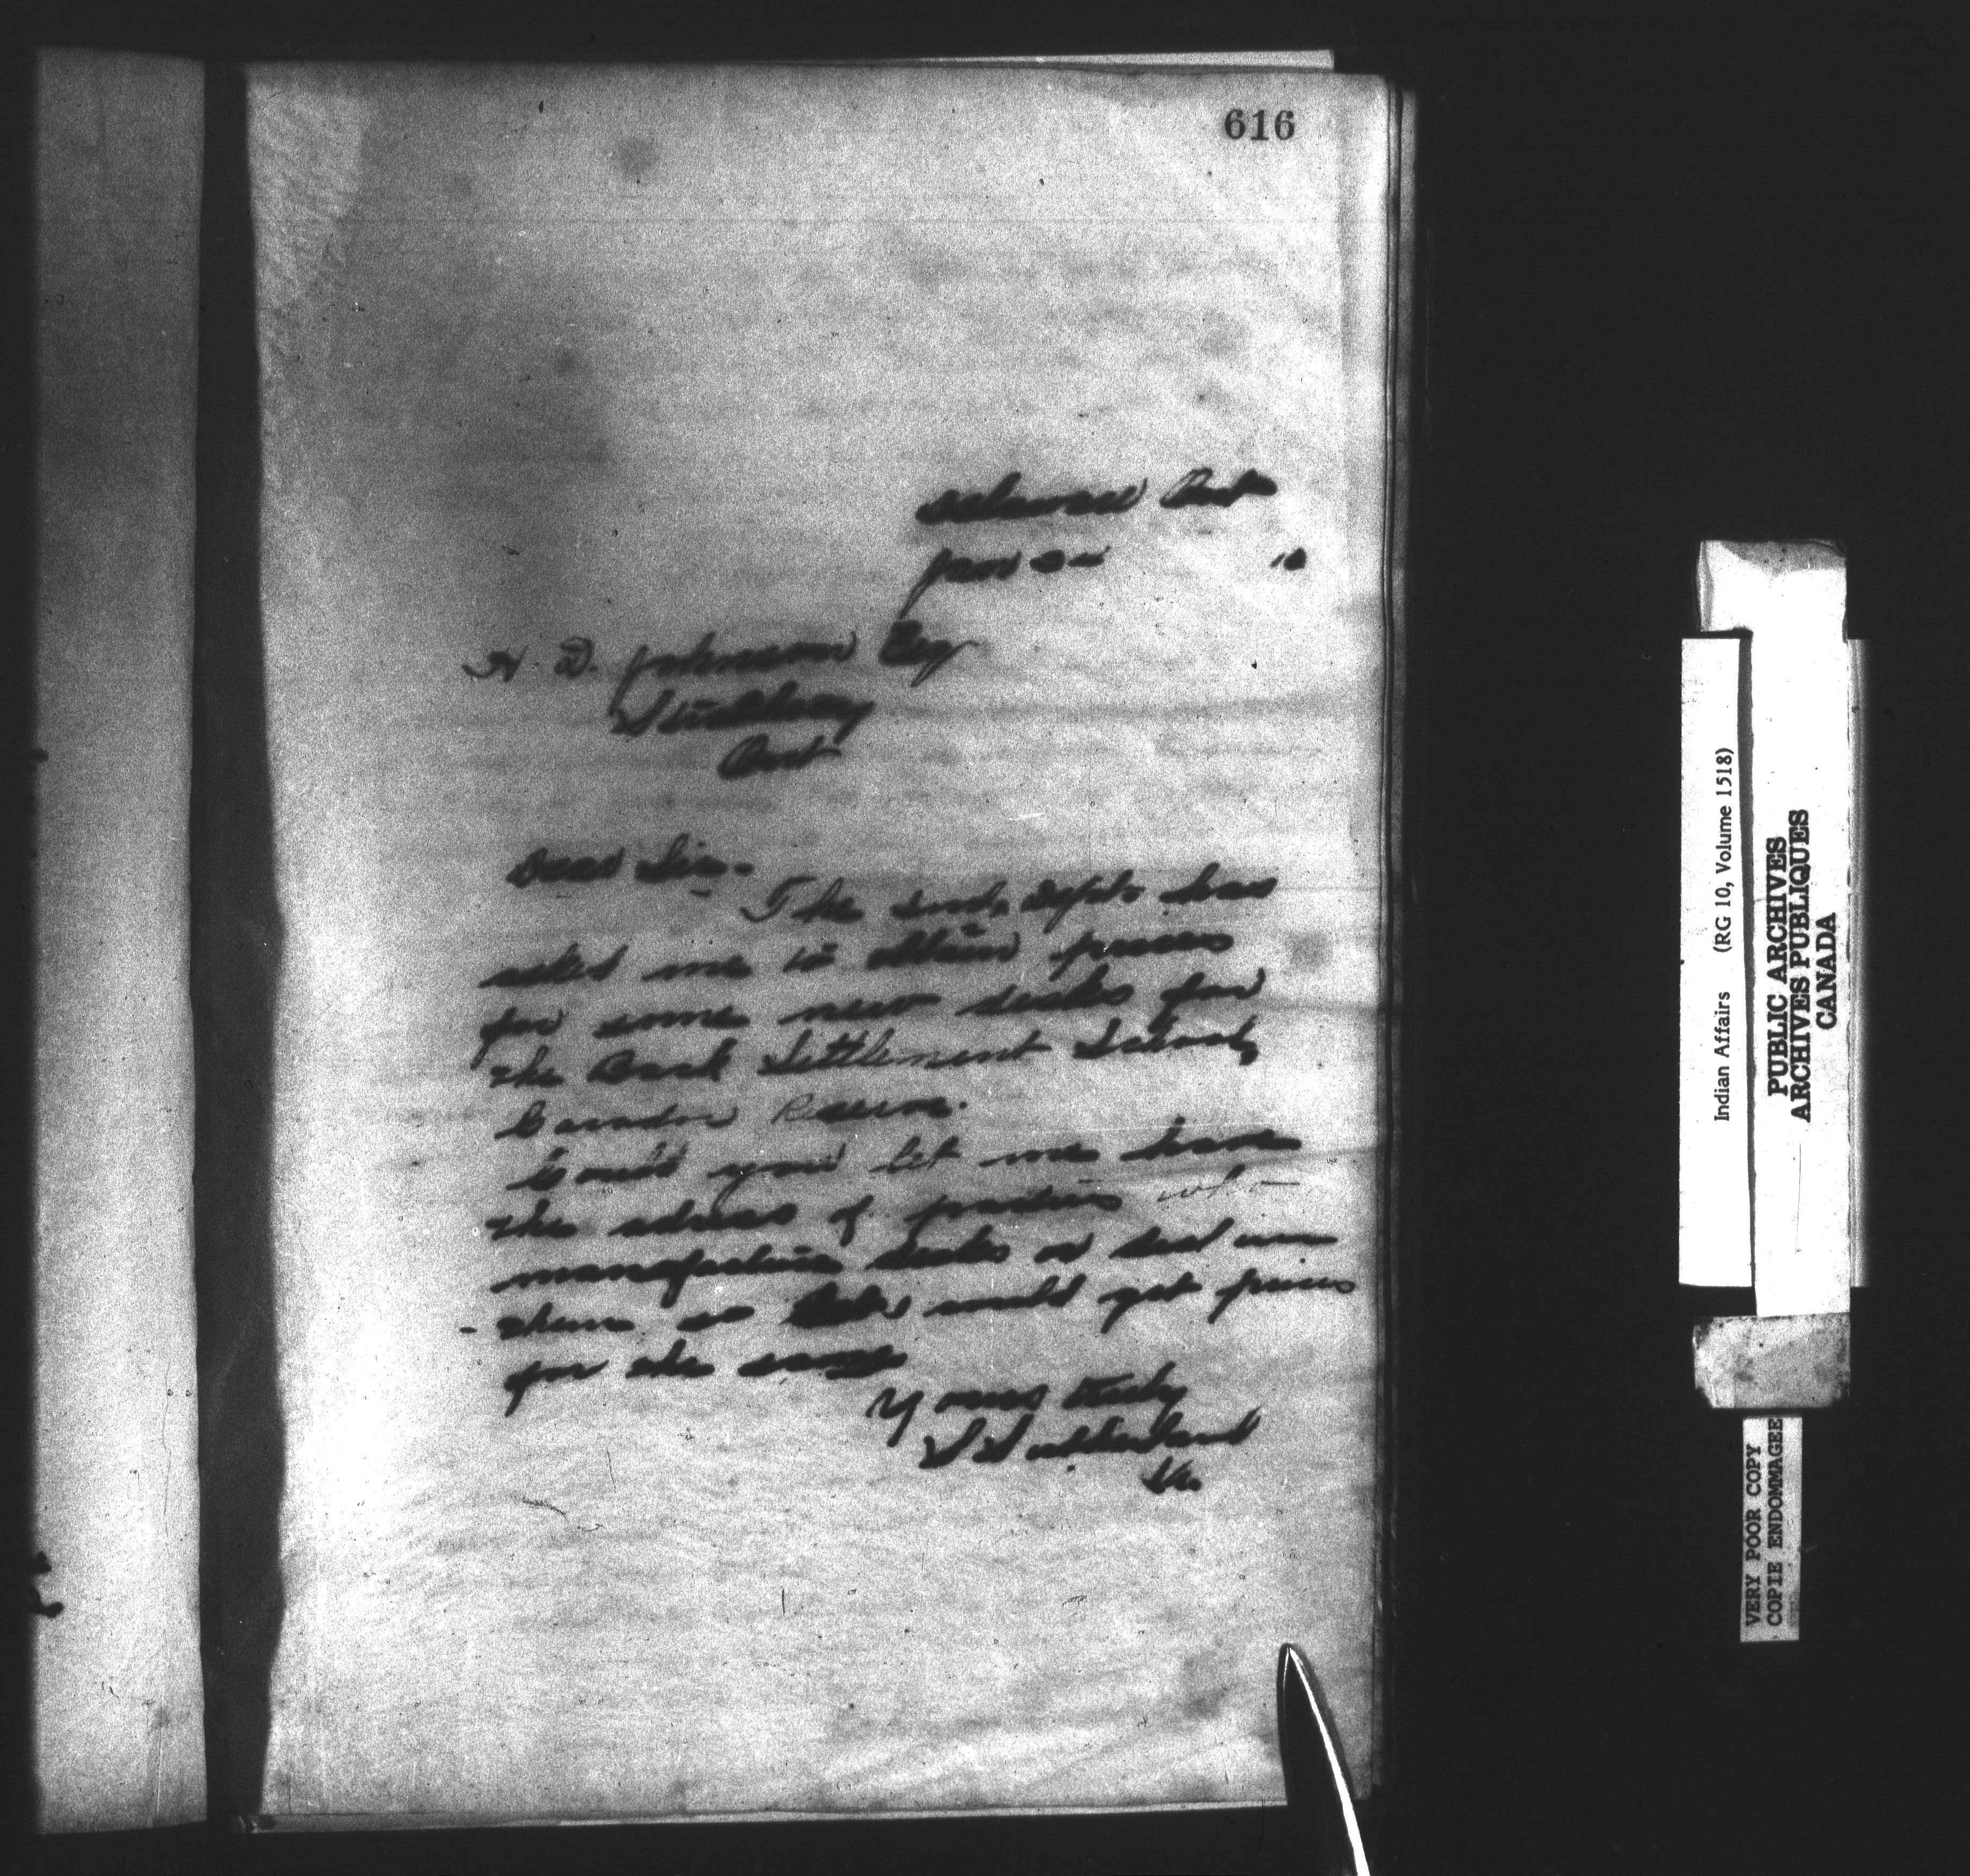 616
Delaware Ont
Jan 10
H. D. Johnson Esq
Strathroy
Ont
Dear Sir.
The Ind. Dept. has
asked me to obtain prices
for some new desks for
the Back Settlement School,
Caradoc Reserve.
Could you let me have
the adress of parties who
manufacture desks or deal in
them so would get prices
for the same
Yours truly
S Sutherland
Indian Affairs (RG 10, Volume 1518)
PUBLIC ARCHIVES
ARCHIVES PUBLIQUES
CANADA
VERY POOR COPY
COPIE ENDOMMAGEE